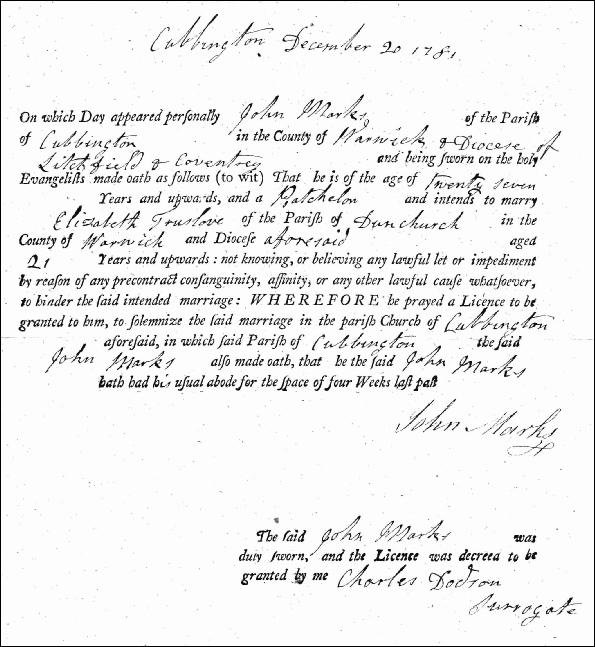 Cubbington December 20 1781
On which Day appeared personally John Marks of the Parish
of Cubbington in the County of Warwick & Diocese of
Litchfield & Coventrey and being sworn on the holy
Evangelists made oath as follows (to wit) That he is of the age of twenty seven
Years and upwards, and a Batchelor and intends to marry
Elizabeth Truslove of the Parish of Dunchurch in the
County of Warwick and Diocese aforesaid aged
21 Years and upwards : not knowing, or believing any lawful let or impediment
by reason of any precontract consanguinity, affinity, or any other lawful cause whatsoever,
to hinder the said intended marriage : WHEREFORE he prayed a Licence to be
granted to him, to solemnize the said marriage in the parish Church of Cubbington
aforesaid, in which said Parish of Cubbington the said
John Marks also made oath, that he the said John Marks
hath had his usual abode for the space of four Weeks last past
John Marks
The said John Marks was
duty sworn, and the Licence was decreed to be
granted by me Charles Dodson
Surrogate